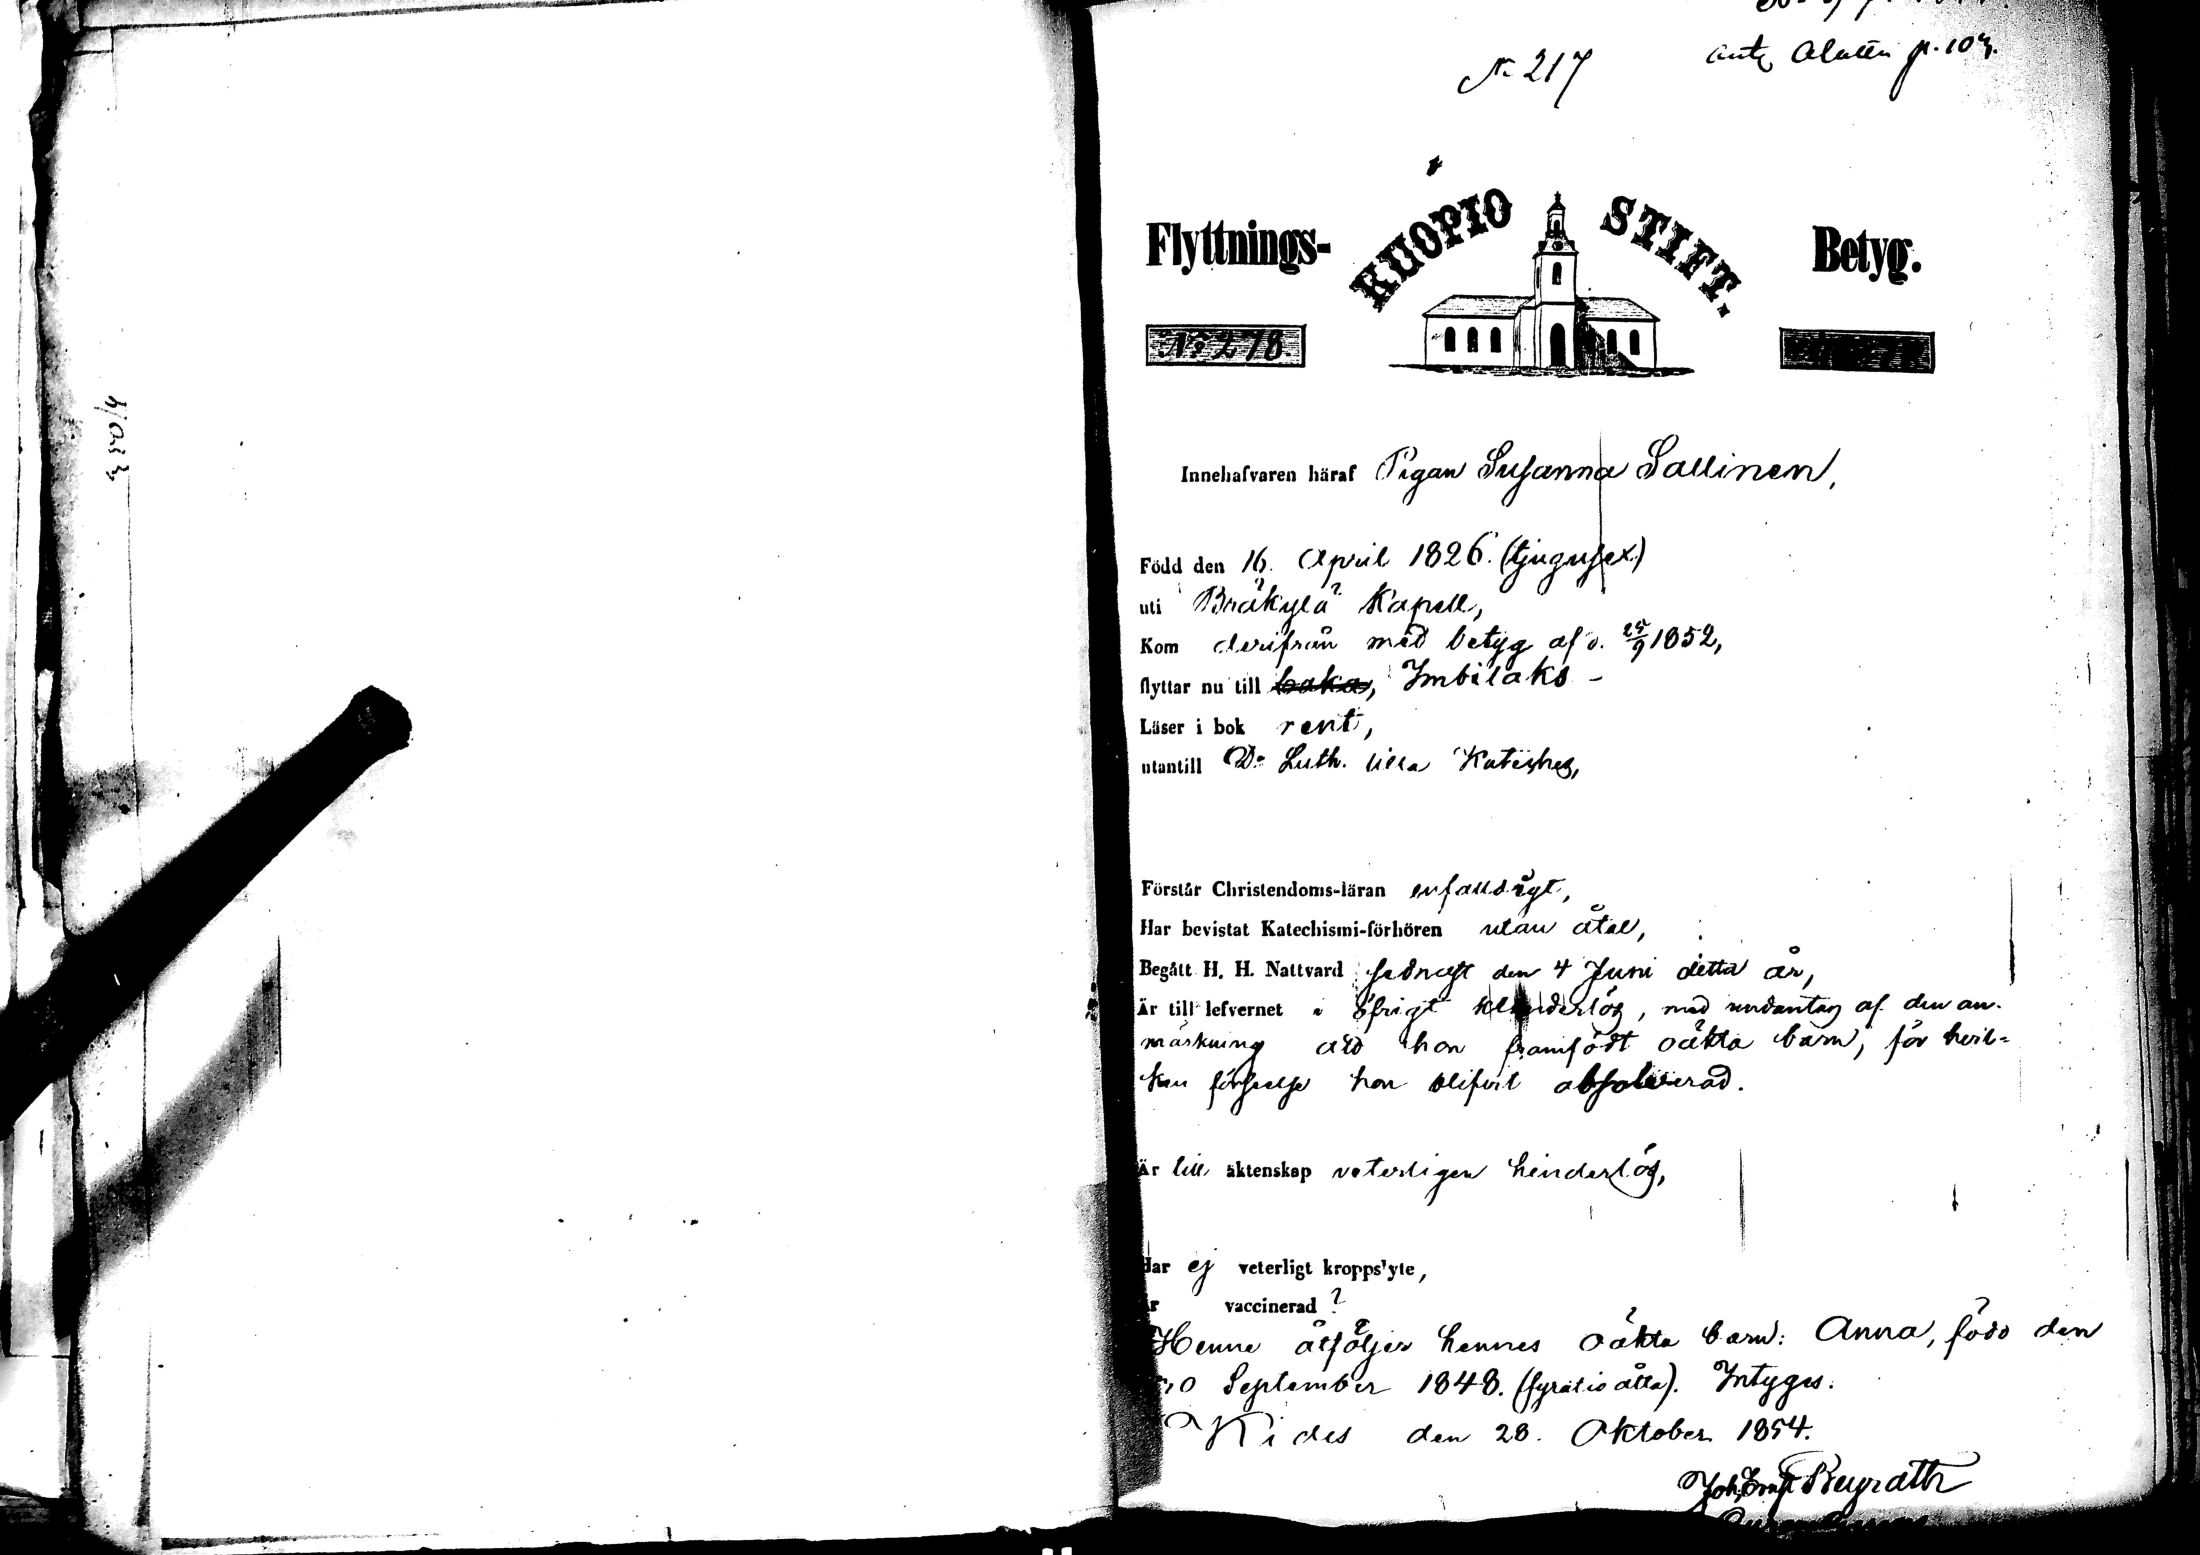 N 217
p. 103.
KUOPIO STIFT.
Flyttnings- Betyg.
No 278.
Innehafvaren häraf Pigan Susanna Sallinen,
Född den 16. April 1826. (tjugusex)
uti Bräkylä Kapell,
Kom derifrån med betyg af d. 25/9 1852,
flyttar nu till Imbilaks –
Läser i bok rent,
utantill Dr Luth. lilla Kateches,
Förstår Christendoms-läran enfaldigt,
Har bevistat Katechismi-förhören utan åtal,
Begått H. H. Nattvard sednast den 4 Juni detta år,
Är till lefvernet öfrigt klanderlös, med undantag af den an-
märkning att hon framfödt oäkta barn, för hvil=
ken förseelse hon blifvit absolverad.
Är till äktenskap veterligen hinderlös,
Har ej veterligt kroppslyte,
Är vaccinerad ?
Henne åtföljer hennes oäkta barn: Anna, född den
10 September 1848. (fyratioåtta). Intygas.
Kides den 28. Oktober 1854.
Joh. Ernst